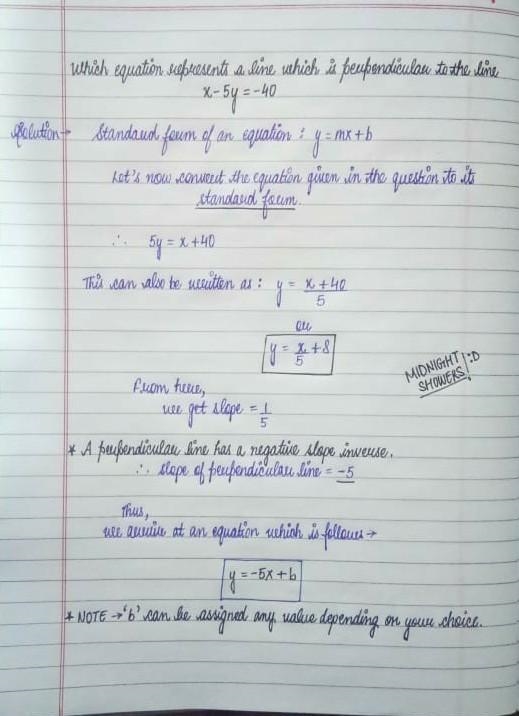 Which equation represents a line which is perpendicular to the line
x-5y=-40
Solution→ Standard form of an equation : y=mx+b
Let's now convert the equation given in the question to its
standard form.
∴ 5y = x+40
This can also be written as : y = x+40/5
or
y = x/5 +8
MIDNIGHT SHOWERS! :D
From here,
we get slope = 1/5
* A perpendicular line has a negative slope inverse.
∴ slope of perpendicular line = -5
Thus,
we arrive at an equation which is follows→
y = -5x+b
* NOTE →'b' can be assigned any value depending on your choice.